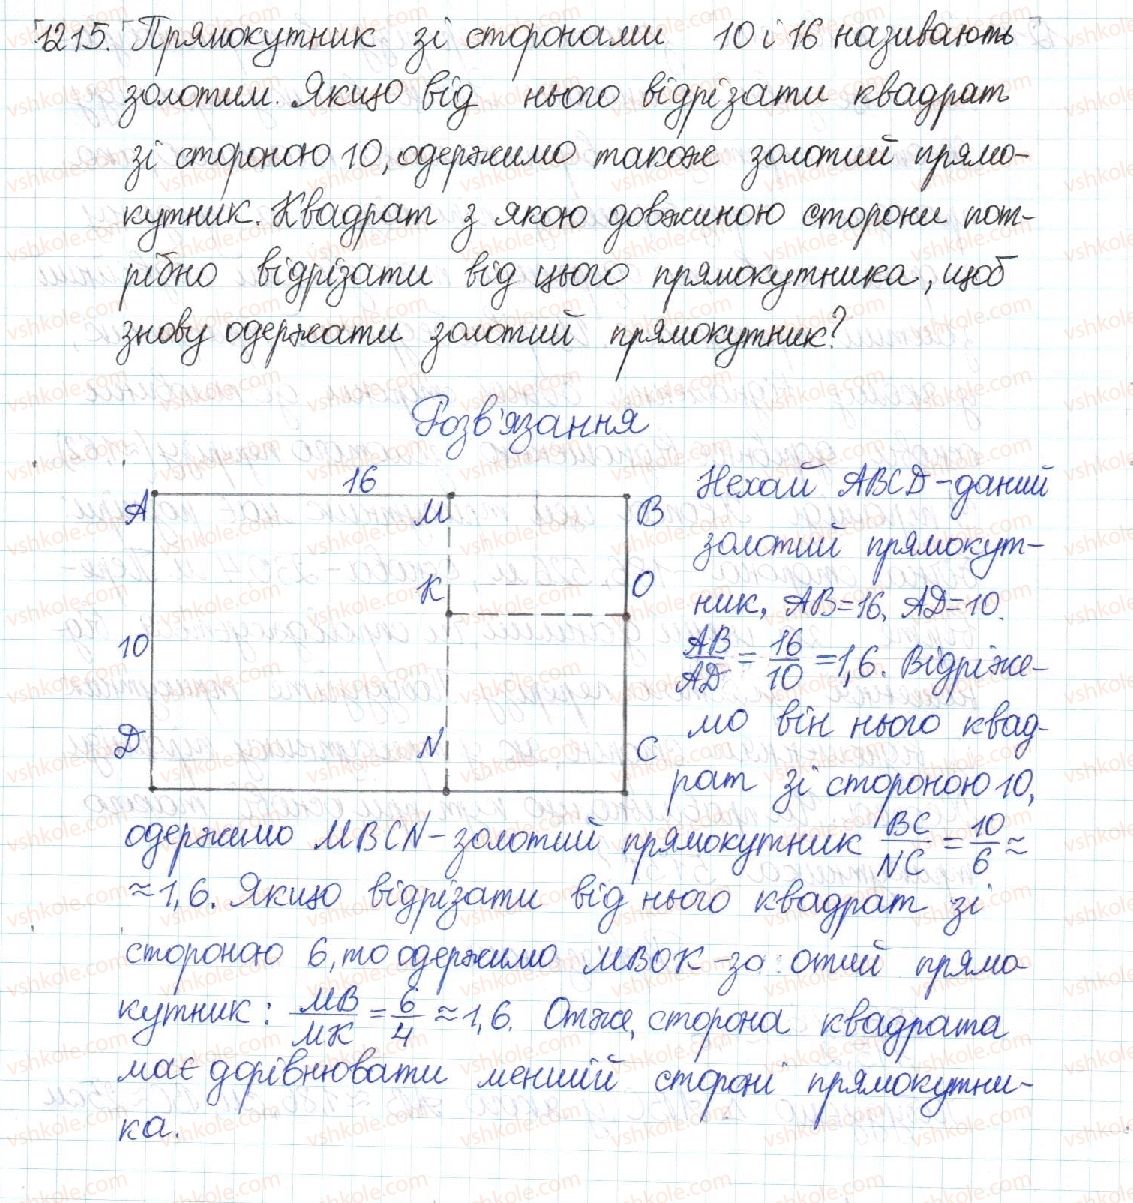 1215. Прямокутник зі сторонами 10 і 16 називають
золотим. Якщо від нього відрізати квадрат
зі стороною 10, одержимо також золотий прямо-
кутник. Квадрат з якою довжиною сторони пот-
рібно відрізати від цього прямокутника, щоб
знову одержати золотий прямокутник?
Розв'язання
16
A M B
K O
10
D N C
Нехай ABCD – даний
золотий прямокут-
ник, AB=16, AD=10.
AB/AD = 16/10 = 1,6. Відріже-
мо він нього квад-
рат зі стороною 10,
одержимо MBCN – золотий прямокутник BC/NC = 10/6 ≈
≈ 1,6. Якщо відрізати від нього квадрат зі
стороною 6, то одержимо MBOK – зо отий прямо
кутник: MB/MK = 6/4 ≈ 1,6. Отже, сторона квадрата
має дорівнювати меншій стороні прямокутни-
ка.
vshkole.com